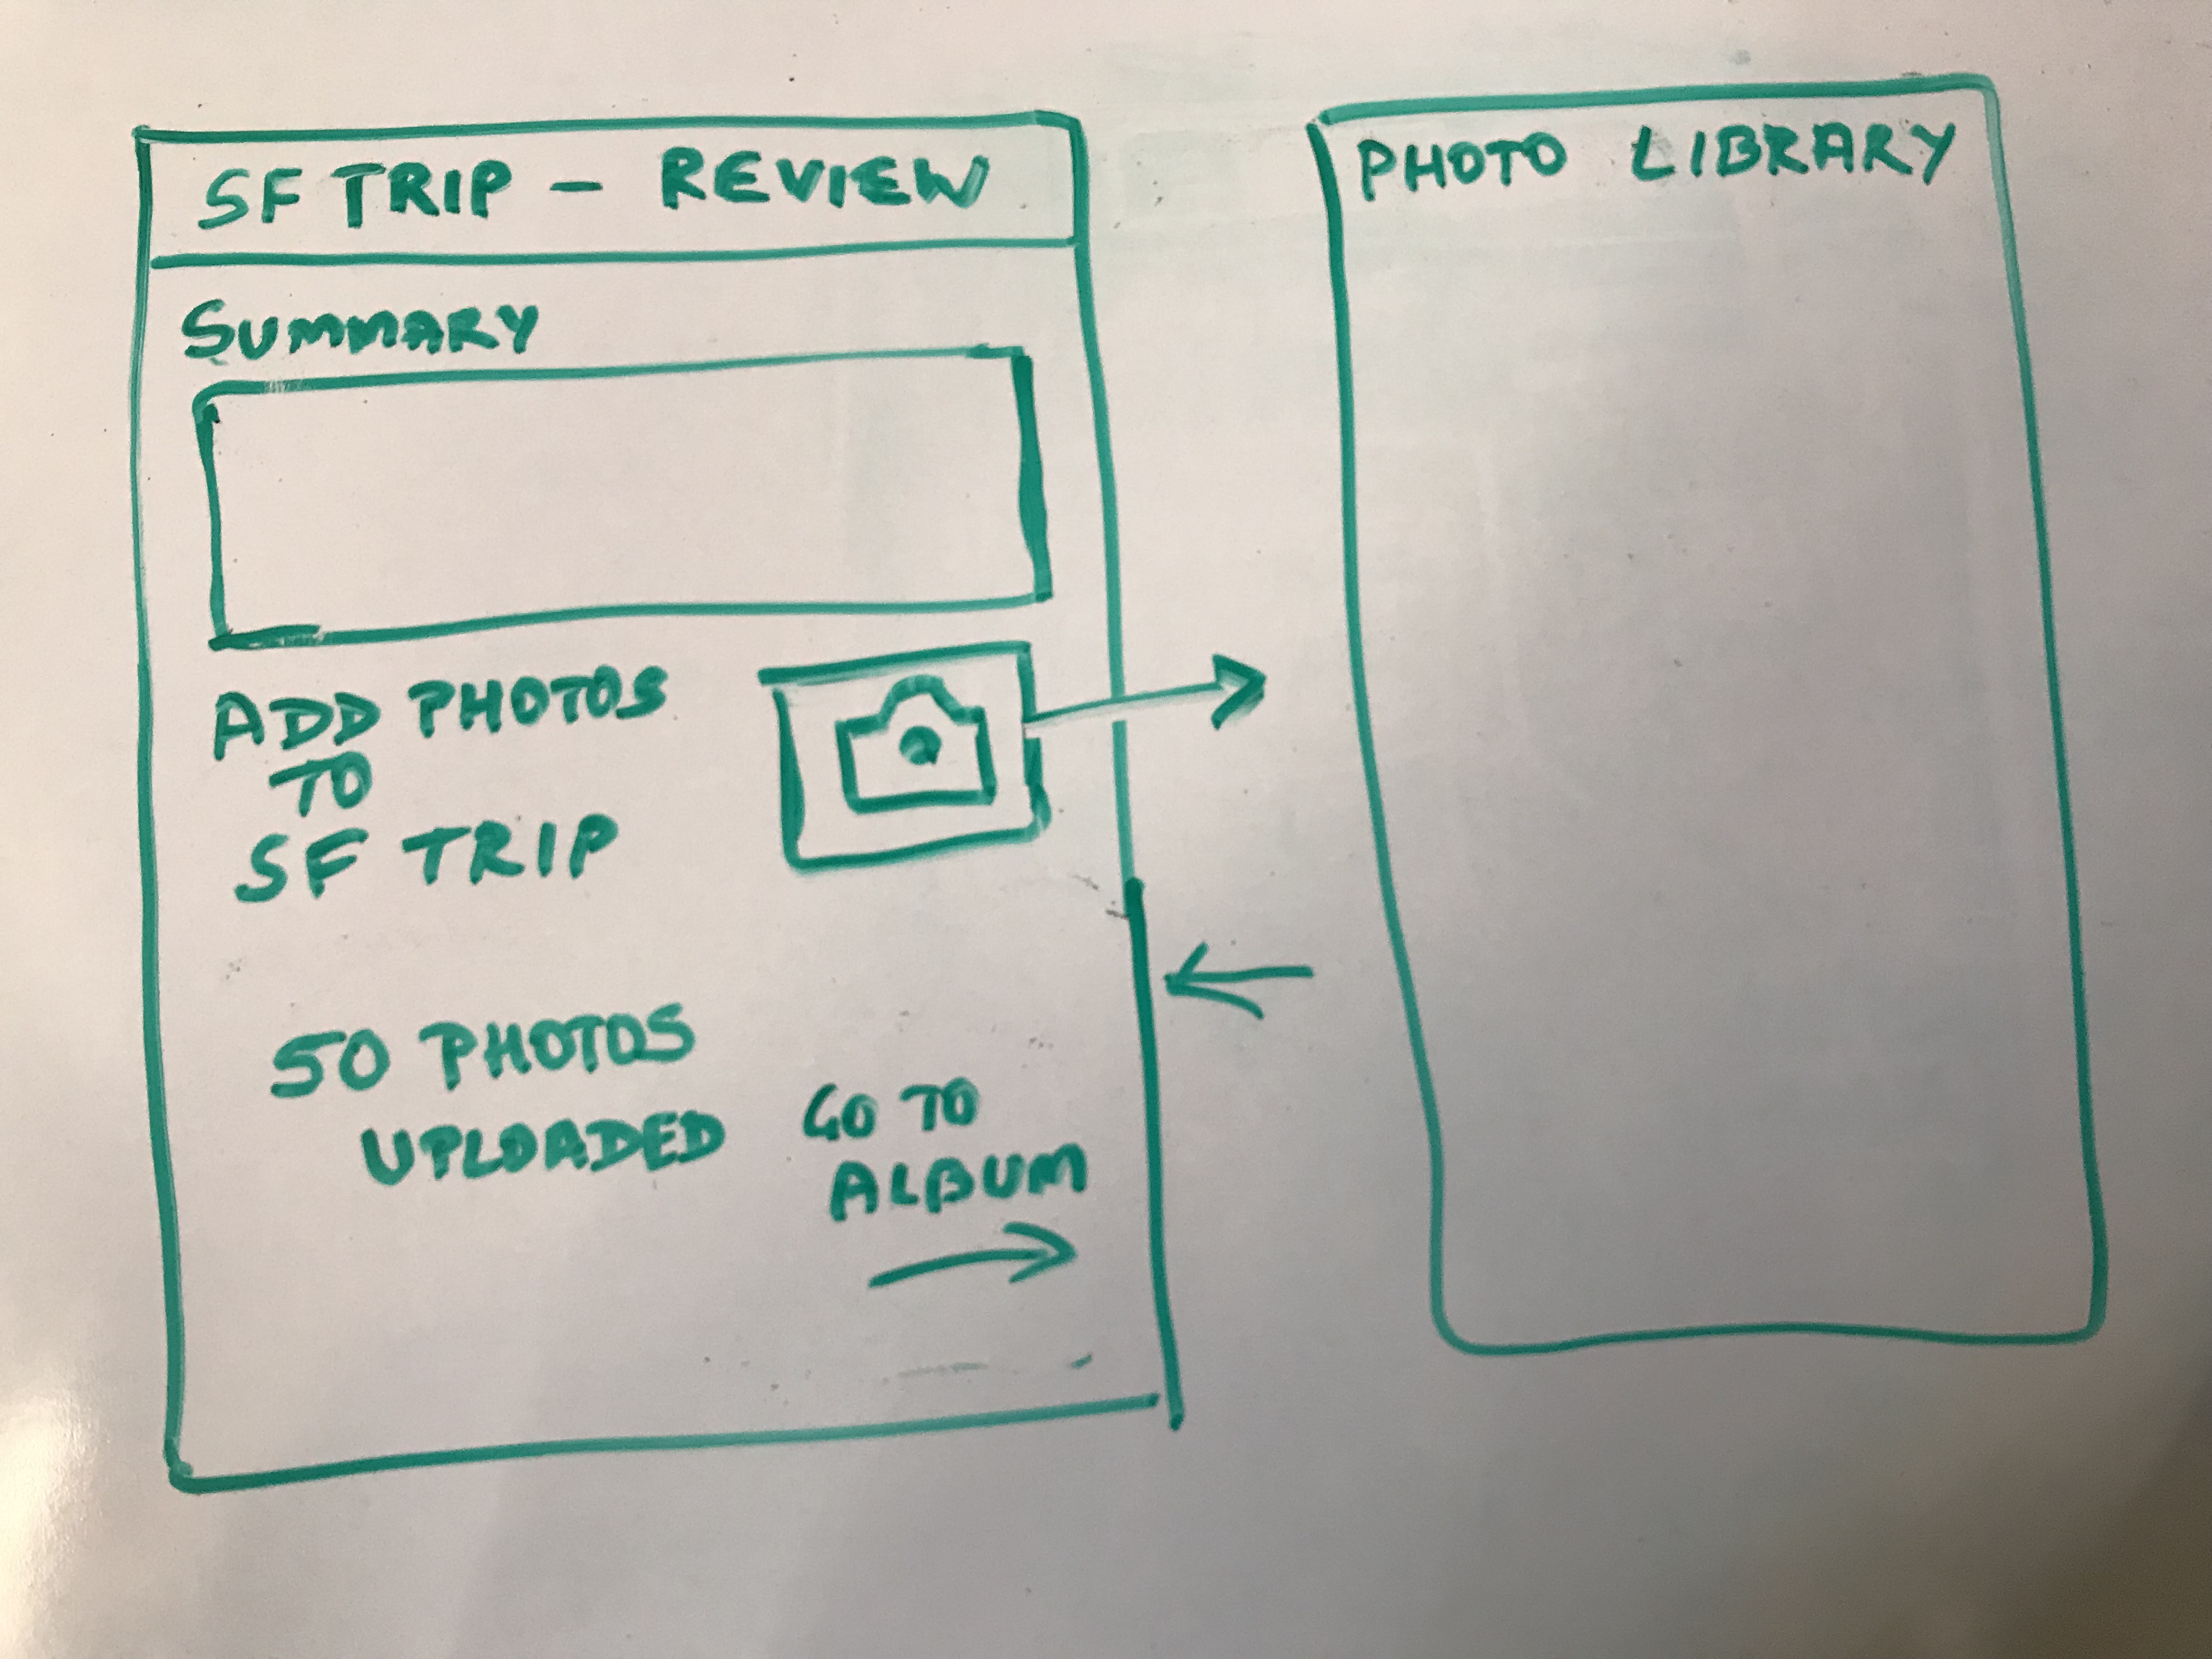 SF TRIP - REVIEW
SUMMARY
ADD PHOTOS
TO
SF TRIP
50 PHOTOS
UPLOADED
GO TO
ALBUM
PHOTO LIBRARY